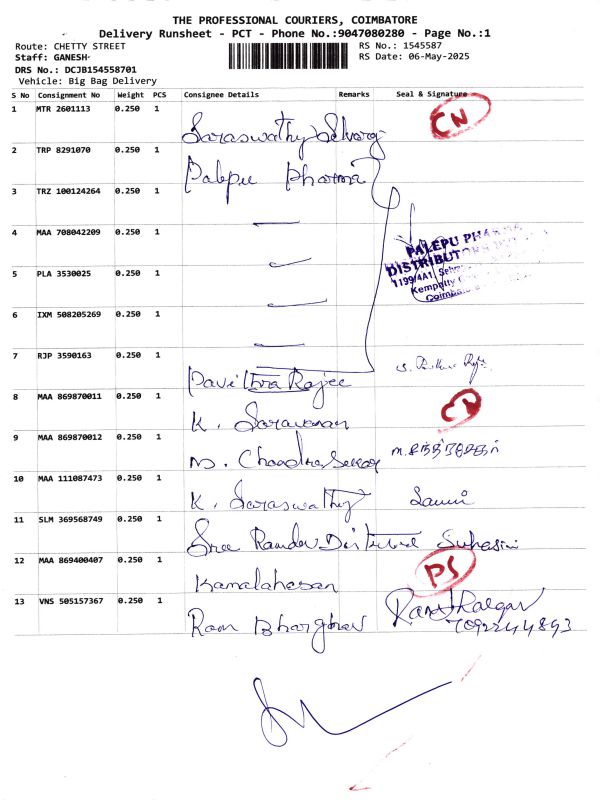 THE PROFESSIONAL COURIERS, COIMBATORE
Delivery Runsheet - PCT - Phone No.:9047080280 - Page No.:1
Route: CHETTY STREET
RS No.: 1545587
Staff: GANESH
RS Date: 06-May-2025
DRS No.: DCJB154558701
Vehicle: Big Bag Delivery
S No Consignment No Weight PCS Consignee Details Remarks Seal & Signature
1 MTR 2601113 0.250 1 CN
Saraswathy
2 TRP 8291070 0.250 1
Palepu Pharma
3 TRZ 100124264 0.250 1
4 MAA 708042209 0.250 1
PALEPU PHARMA
DISTRIBUTORS
1199/4A1
5 PLA 3530025 0.250 1
Kempatty
6 IXM 508205269 0.250 1
7 RJP 3590163 0.250 1
Pavithra Rajee
8 MAA 869870011 0.250 1 CN
K. Saravanan
9 MAA 869870012 0.250 1
M. Chandra Sekar
10 MAA 111087473 0.250 1
K. Saraswathy
11 SLM 369568749 0.250 1
Sree Suhasini
12 MAA 869400407 0.250 1 PS
Kamalahasan
13 VNS 505157367 0.250 1
Ram Bharghav